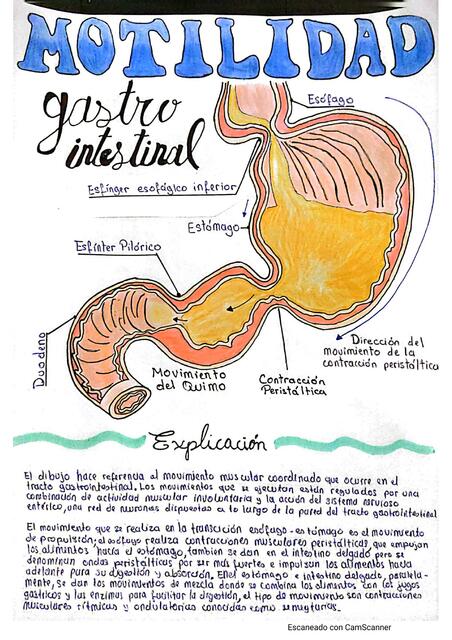 MOTILIDAD
gastro
intestinal
Esófago
Esfínger esofágico inferior
Estómago
Esfínter Pilórico
Duodeno
Movimiento
del Quimo
Contracción
Peristáltica
Dirección del
movimiento de la
contracción peristáltica
Explicación
El dibujo hace referencia al movimiento muscular coordinado que ocurre en el
tracto gastrointestinal. Los movimientos que se ejecutan están regulados por una
combinación de actividad muscular involuntaria y la acción del sistema nervioso
entérico, una red de neuronas dispuestas a lo largo de la pared del tracto gastrointestinal
El movimiento que se realiza en la transición esófago-estómago es el movimiento
de propulsión; el esófago realiza contracciones musculares peristálticas, que empujan
los alimentos hacia el estómago, también se dan en el intestino delgado pero se
denominan ondas peristálticas por ser más fuertes e impulsan los alimentos hacia
adelante para su digestión y absorción. En el estómago e intestino delgado, paralela-
mente, se dan los movimientos de mezcla donde se combina los alimentos con los jugos
gástricos y las enzimas para facilitar la digestión, el tipo de movimiento son contracciones
musculares rítmicas y ondulatorias conocidas como
Escaneado con CamScanner